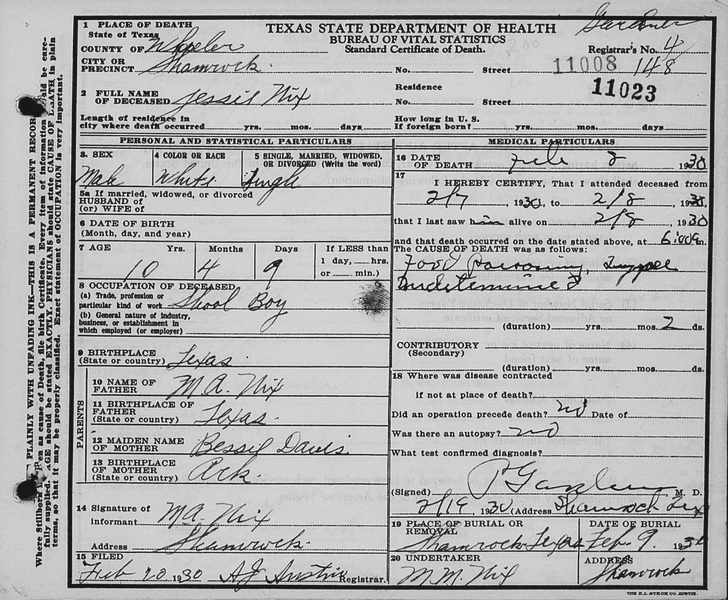 1 PLACE OF DEATH
State of Texas
COUNTY OF Wheeler
CITY OR
PRECINCT Shamrock.
TEXAS STATE DEPARTMENT OF HEALTH
BUREAU OF VITAL STATISTICS
Standard Certificate of Death.
Gardner
Registrar's No. 4
11008 148
No. Street
2 FULL NAME
OF DECEASED Jessie Nix
Residence
No. Street
11023
Length of residence in
city where death occurred yrs. mos. days
How long in U. S.
If foreign born? yrs. mos. days
PERSONAL AND STATISTICAL PARTICULARS
3. SEX
Male
4 COLOR OR RACE
White
5 SINGLE, MARRIED, WIDOWED,
OR DIVORCED (Write the word)
Single
5a If married, widowed, or divorced
HUSBAND OF
(or) WIFE OF
6 DATE OF BIRTH
(Month, day, and year)
7 AGE Yrs. Months Days
10 4 9
If LESS than
1 day, hrs.
or min.
8 OCCUPATION OF DECEASED
(a) Trade, profession or
particular kind of work School Boy
(b) General nature of industry,
business, or establishment in
which employed (or employer)
9 BIRTHPLACE
(State or country) Texas.
PARENTS
10 NAME OF
FATHER M.A. Nix
11 BIRTHPLACE OF
FATHER
(State or country) Texas.
12 MAIDEN NAME
OF MOTHER Bessie Davis
13 BIRTHPLACE
OF MOTHER
(State or country) Ark.
14 Signature of
informant M.A. Nix
Address Shamrock.
15 FILED
Feb 20 1930 A.J. Austin Registrar.
MEDICAL PARTICULARS
16 DATE
OF DEATH Feb 8 1930
17
I HEREBY CERTIFY, That I attended deceased from
2/7 1930, to 2/8 1930
that I last saw him alive on 2/8 1930
and that death occurred on the date stated above, at 6:00a m.
The CAUSE OF DEATH was as follows:
Food poisoning,
undetermined
(duration) yrs. mos. 2 ds.
CONTRIBUTORY
(Secondary)
(duration) yrs. mos. ds.
18 Where was disease contracted
if not at place of death?
Did an operation precede death? no Date of
Was there an autopsy? no
What test confirmed diagnosis?
(Signed) Gardner M. D.
2/19, 1930 (Address) Shamrock Tex
19 PLACE OF BURIAL OR
REMOVAL
Shamrock Texas
DATE OF BURIAL
Feb. 9 1930
20 UNDERTAKER
M.M. Nix
ADDRESS
Shamrock